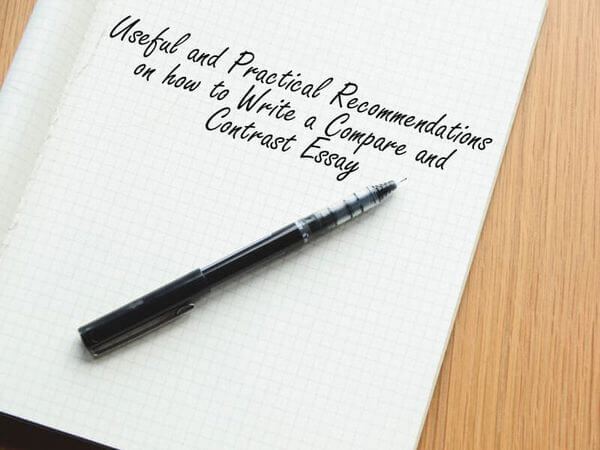 Useful and Practical Recommendations
on how to Write a Compare and
Contrast Essay